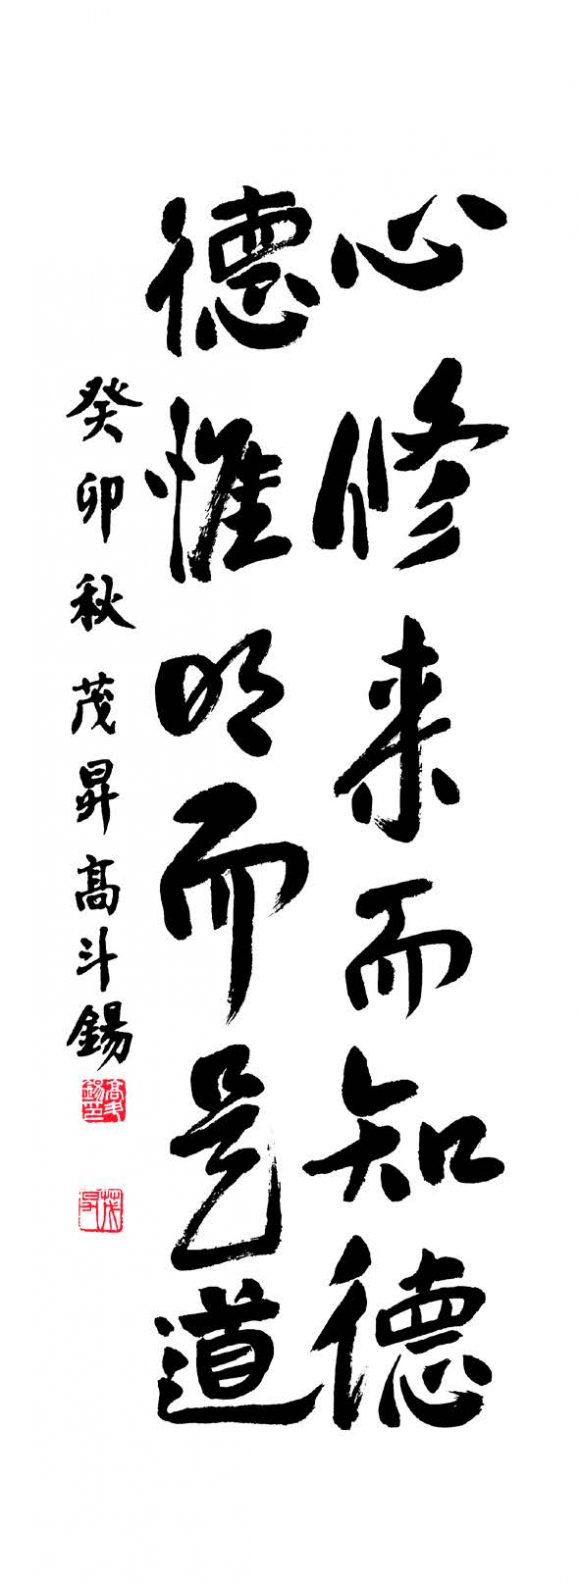 心修来而知德
德惟明而是道
癸卯秋 茂昇高斗錫